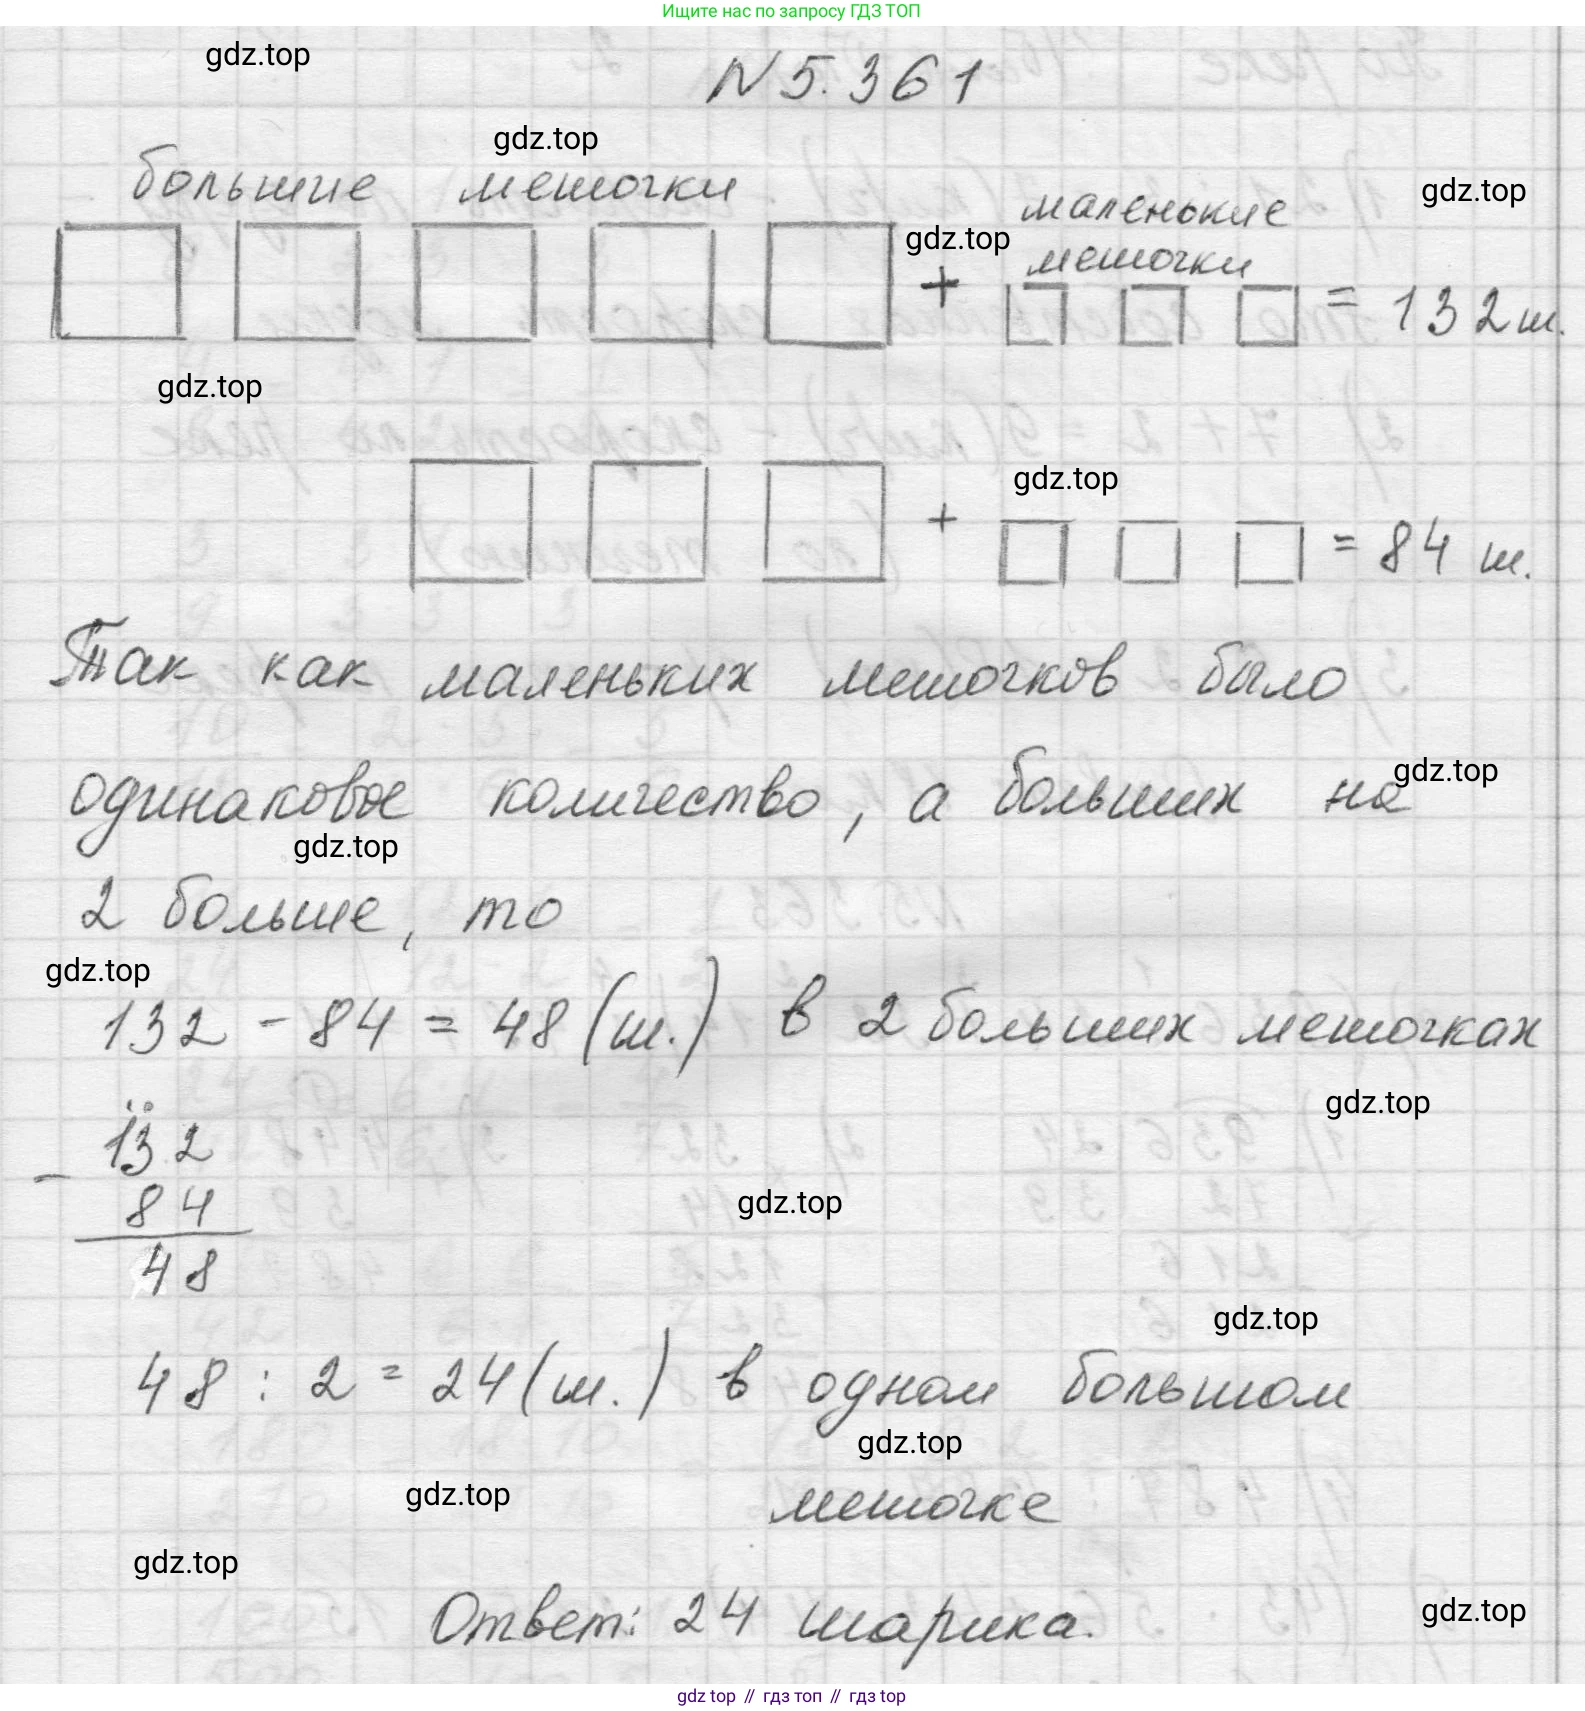 Ищите нас по запросу ГДЗ ТОП
gdz.top
N 5.361
gdz.top
большие мешочки
gdz.top
маленькие
gdz.top
мешочки
+ = 132 ш.
gdz.top
gdz.top
+ = 84 ш.
Так как маленьких мешочков было
gdz.top
одинаковое количество, а больших на
gdz.top
2 больше, то
gdz.top
132 - 84 = 48 (ш.) в 2 больших мешочках
gdz.top
132
-
84
gdz.top
48
gdz.top
48 : 2 = 24 (ш.) в одном большом
gdz.top
gdz.top
мешочке
gdz.top
gdz.top
Ответ: 24 шарика.
gdz top // гдз топ // гдз top